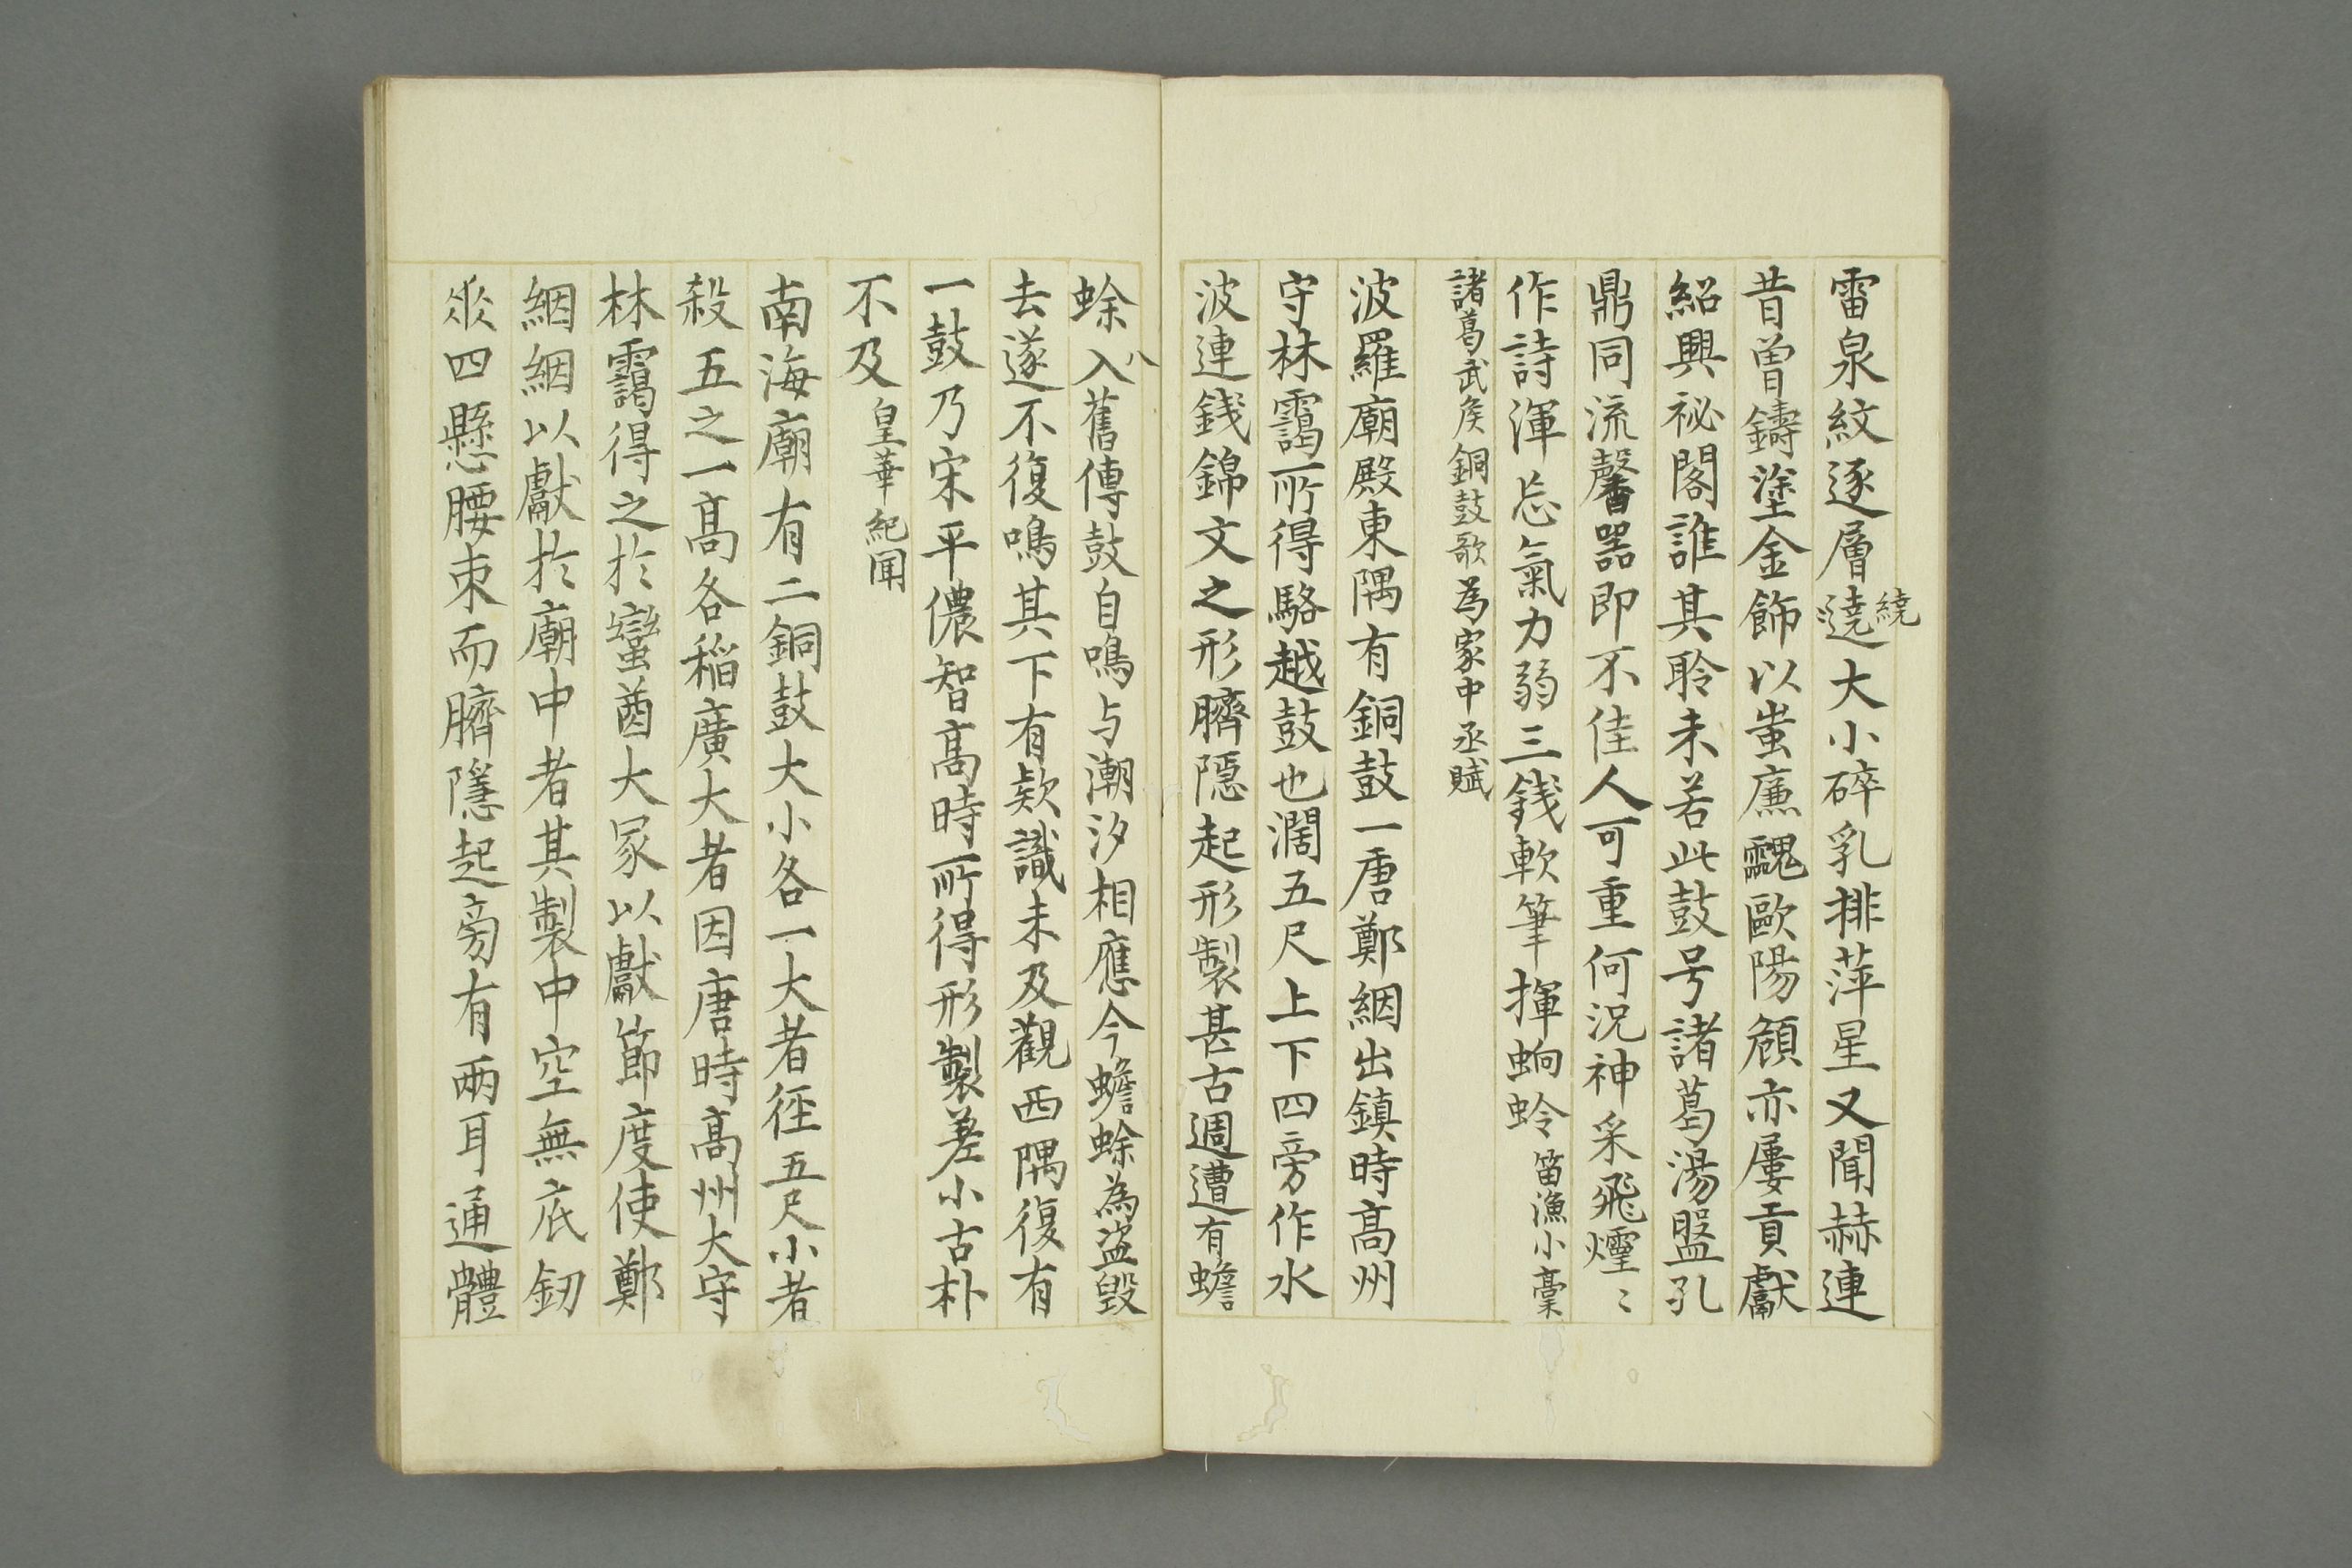 雷泉紋逐層遶大小碎乳排萍星又聞赫連
繞
昔曾鑄塗金飾以蚩廉䰟歐陽頠亦屢貢獻
紹興祕閣誰其聆未若此鼓号諸葛湯盤孔
鼎同流馨器即不佳人可重何況神采飛爧〻
作詩渾忘氣力弱三錢軟筆揮蛧蛉 笛漁小藁
諸葛武矦銅鼓歌為家中丞賦
波羅廟殿東隅有銅鼓一唐鄭絪出鎮時高州
守林靄所得駱越鼓也濶五尺上下四旁作水
波連錢錦文之形臍隱起形製甚古週遭有蟾
蜍入舊傳鼓自鳴与潮汐相應今蟾蜍為盜毀
八
去遂不復鳴其下有欵識未及觀西隅復有
一鼓乃宋平儂智高時所得形製差小古朴
不及 皇華紀聞
南海廟有二銅鼓大小各一大者徑五尺小者
殺五之一高各稱廣大者因唐時高州太守
林靄得之於蠻酋大冢以獻節度使鄭
絪絪以獻於廟中者其製中空無底釰
垂四懸腰束而臍隱起旁有兩耳通體